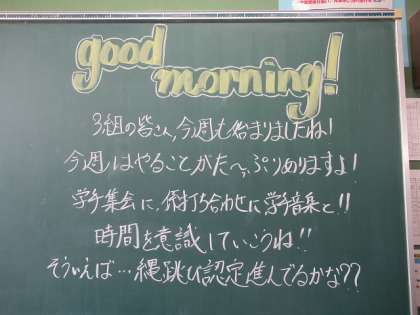 good
morning!
3組の皆さん、今週も始まりましたね!
今週はやることがたーっぷりありますよ!
学年集会に、係打ち合わせに学年音集と!!
時間を意識していこうね!!
そういえば…縄跳び認定進んでるかな??